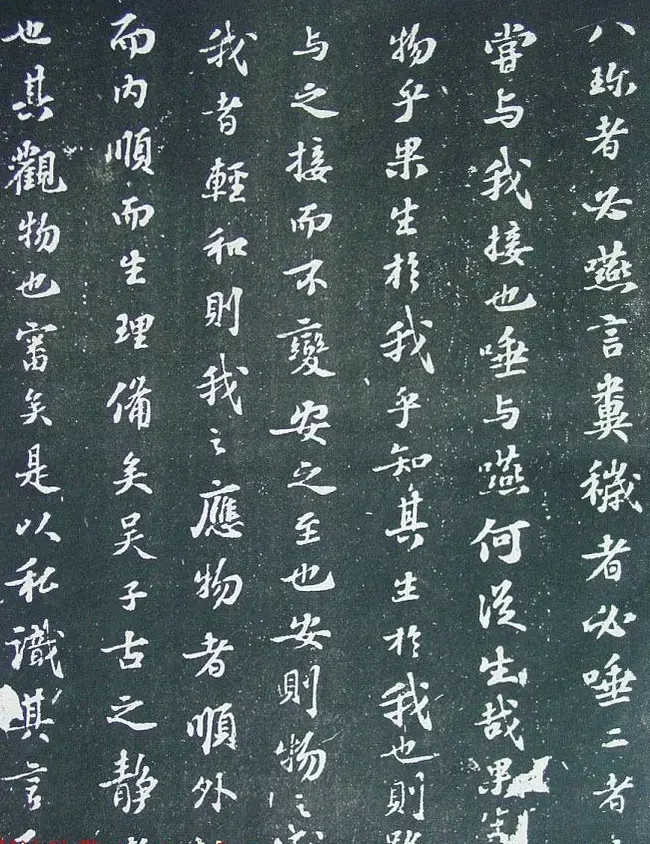 八珎者必嚥言糞穢者必唾二者
嘗与我接也唾与嚥何從生哉果生
物乎果生於我乎知其生於我也則
与之接而不變安之至也安則物之
我者輕和則我之應物者順外
而内順而生理備矣吴子古之静
也其觀物也審矣是以私識其言